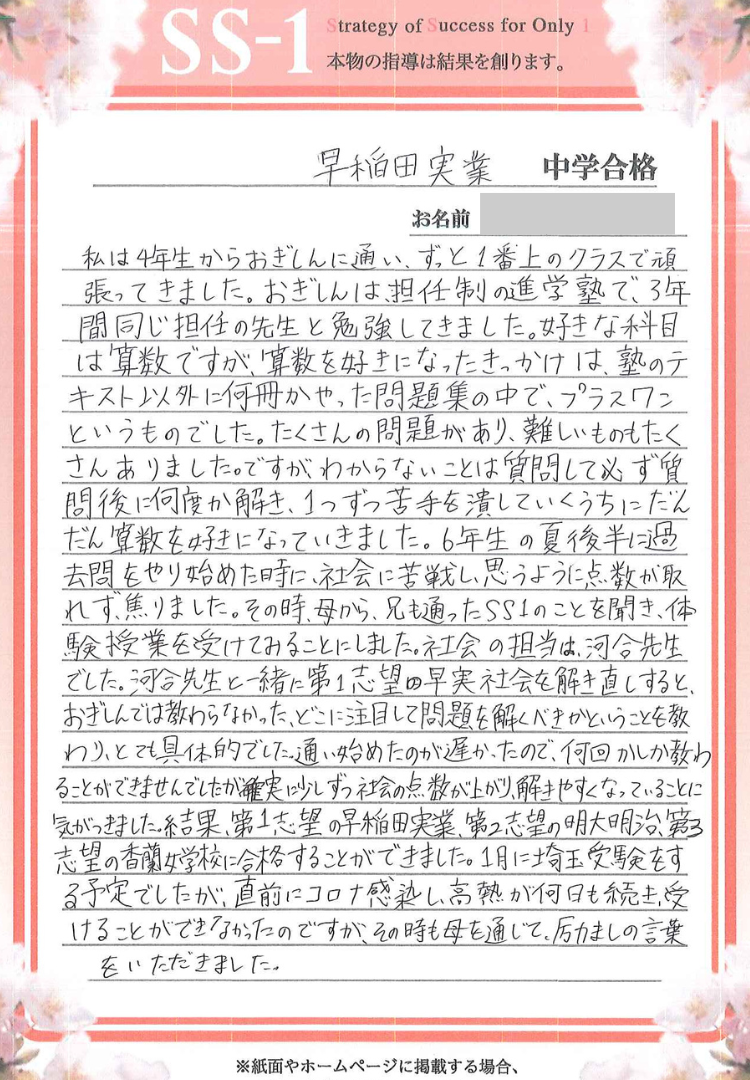 SS-1
Strategy of Success for Only 1
本物の指導は結果を創ります。
早稲田実業 中学合格
お名前
私は4年生からおぎしんに通い、ずっと1番上のクラスで頑
張ってきました。おぎしんは、担任制の進学塾で、3年
間同じ担任の先生と勉強してきました。好きな科目
は算数ですが、算数を好きになったきっかけは、塾のテ
キスト以外に何冊かやった問題集の中で、プラスワン
というものでした。たくさんの問題があり、難しいものもたく
さんありました。ですが、わからないことは質問して必ず質
問後に何度か解き、1つずつ苦手を潰していくうちにだん
だん算数を好きになっていきました。6年生の夏後半に過
去問をやり始めた時に、社会に苦戦し、思うように点数が取
れず、焦りました。その時、母から、兄も通ったSS1のことを聞き、体
験授業を受けてみることにしました。社会の担当は、河合先生
でした。河合先生と一緒に第1志望の早実社会を解き直しすると、
おぎしんでは教わらなかった、どこに注目して問題を解くべきかということを教
わり、とても具体的でした。通い始めたのが遅かったので、何回かしか教わ
ることができませんでしたが確実に少しずつ社会の点数が上がり、解きやすくなっていることに
気がつきました。結果、第1志望の早稲田実業、第2志望の明大明治、第3
志望の香蘭女学校に合格することができました。1月に埼玉受験をす
る予定でしたが、直前にコロナ感染し、高熱が何日も続き、受
けることができなかったのですが、その時も母を通じて、励ましの言葉
をいただきました。
※紙面やホームページに掲載する場合、